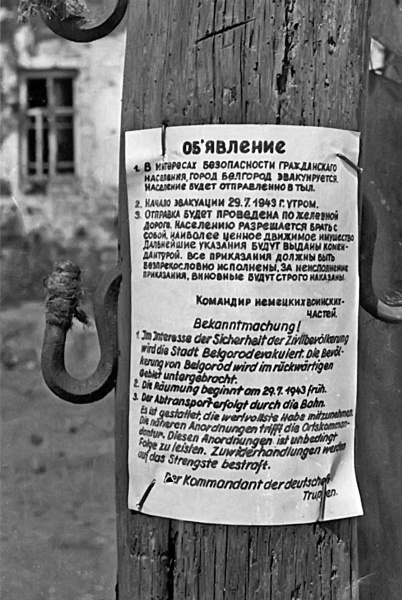 ОБ'ЯВЛЕНИЕ
1. В ИНТЕРЕСАХ БЕЗОПАСНОСТИ ГРАЖДАНСКАГО
НАСЕЛЕНИЯ, ГОРОД БЕЛГОРОД ЭВАКУИРУЕТСЯ.
НАСЕЛЕНИЕ БУДЕТ ОТПРАВЛЕННО В ТЫЛ.
2. НАЧАЛО ЭВАКУАЦИИ 29.7.1943 Г. УТРОМ.
3. ОТПРАВКА БУДЕТ ПРОВЕДЕНА ПО ЖЕЛЕЗНОЙ
ДОРОГЕ. НАСЕЛЕНИЮ РАЗРЕШАЕТСЯ БРАТЬ С
СОБОЙ, НАИБОЛЕЕ ЦЕННОЕ ДВИЖИМОЕ ИМУЩЕСТВО
ДАЛЬНЕЙШИЕ УКАЗАНИЯ БУДУТ ВЫДАНЫ КОМЕН-
ДАНТУРОЙ. ВСЕ ПРИКАЗАНИЯ ДОЛЖНЫ БЫТЬ
БЕЗПРЕКОСЛОВНО ИСПОЛНЕНЫ, ЗА НЕИСПОЛНЕНИЕ
ПРИКАЗАНИЯ, ВИНОВНЫЕ БУДУТ СТРОГО НАКАЗАНЫ.
КОМАНДИР НЕМЕЦКИХ ВОИНСКИХ-
ЧАСТЕЙ.
Bekanntmachung!
1. Im Interesse der Sicherheit der Zivilbevölkerung
wird die Stadt Belgorod evakuiert. Die Bevöl-
kerung von Belgorod wird im rückwärtigen
Gebiet untergebracht.
2. Die Räumung beginnt am 29.7.1943 früh.
3. Der Abtransport erfolgt durch die Bahn.
Es ist gestattet, die wertvollste Habe mitzunehmen.
Die näheren Anordnungen trifft die Ortskomman-
dantur. Diesen Anordnungen ist unbedingt
Folge zu leisten. Zuwiderhandlungen werden
auf das Strengste bestraft.
Der Kommandant der deutschen
Truppen.